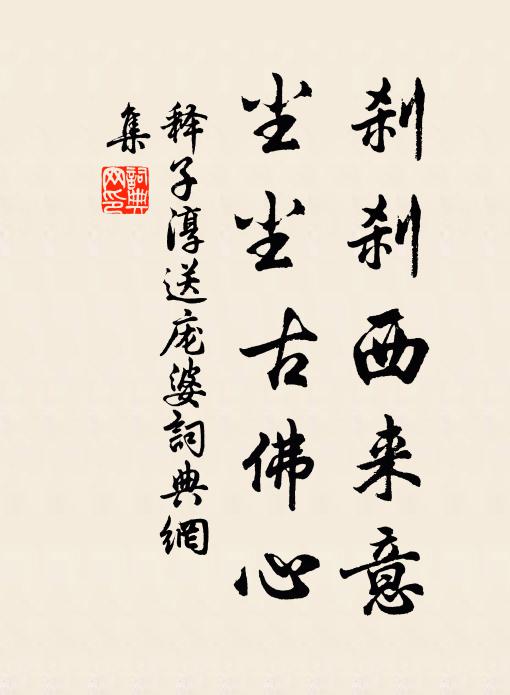 刹刹西来意
尘尘古佛心
释子淳送庞婆詞典網
集
詞典
网印